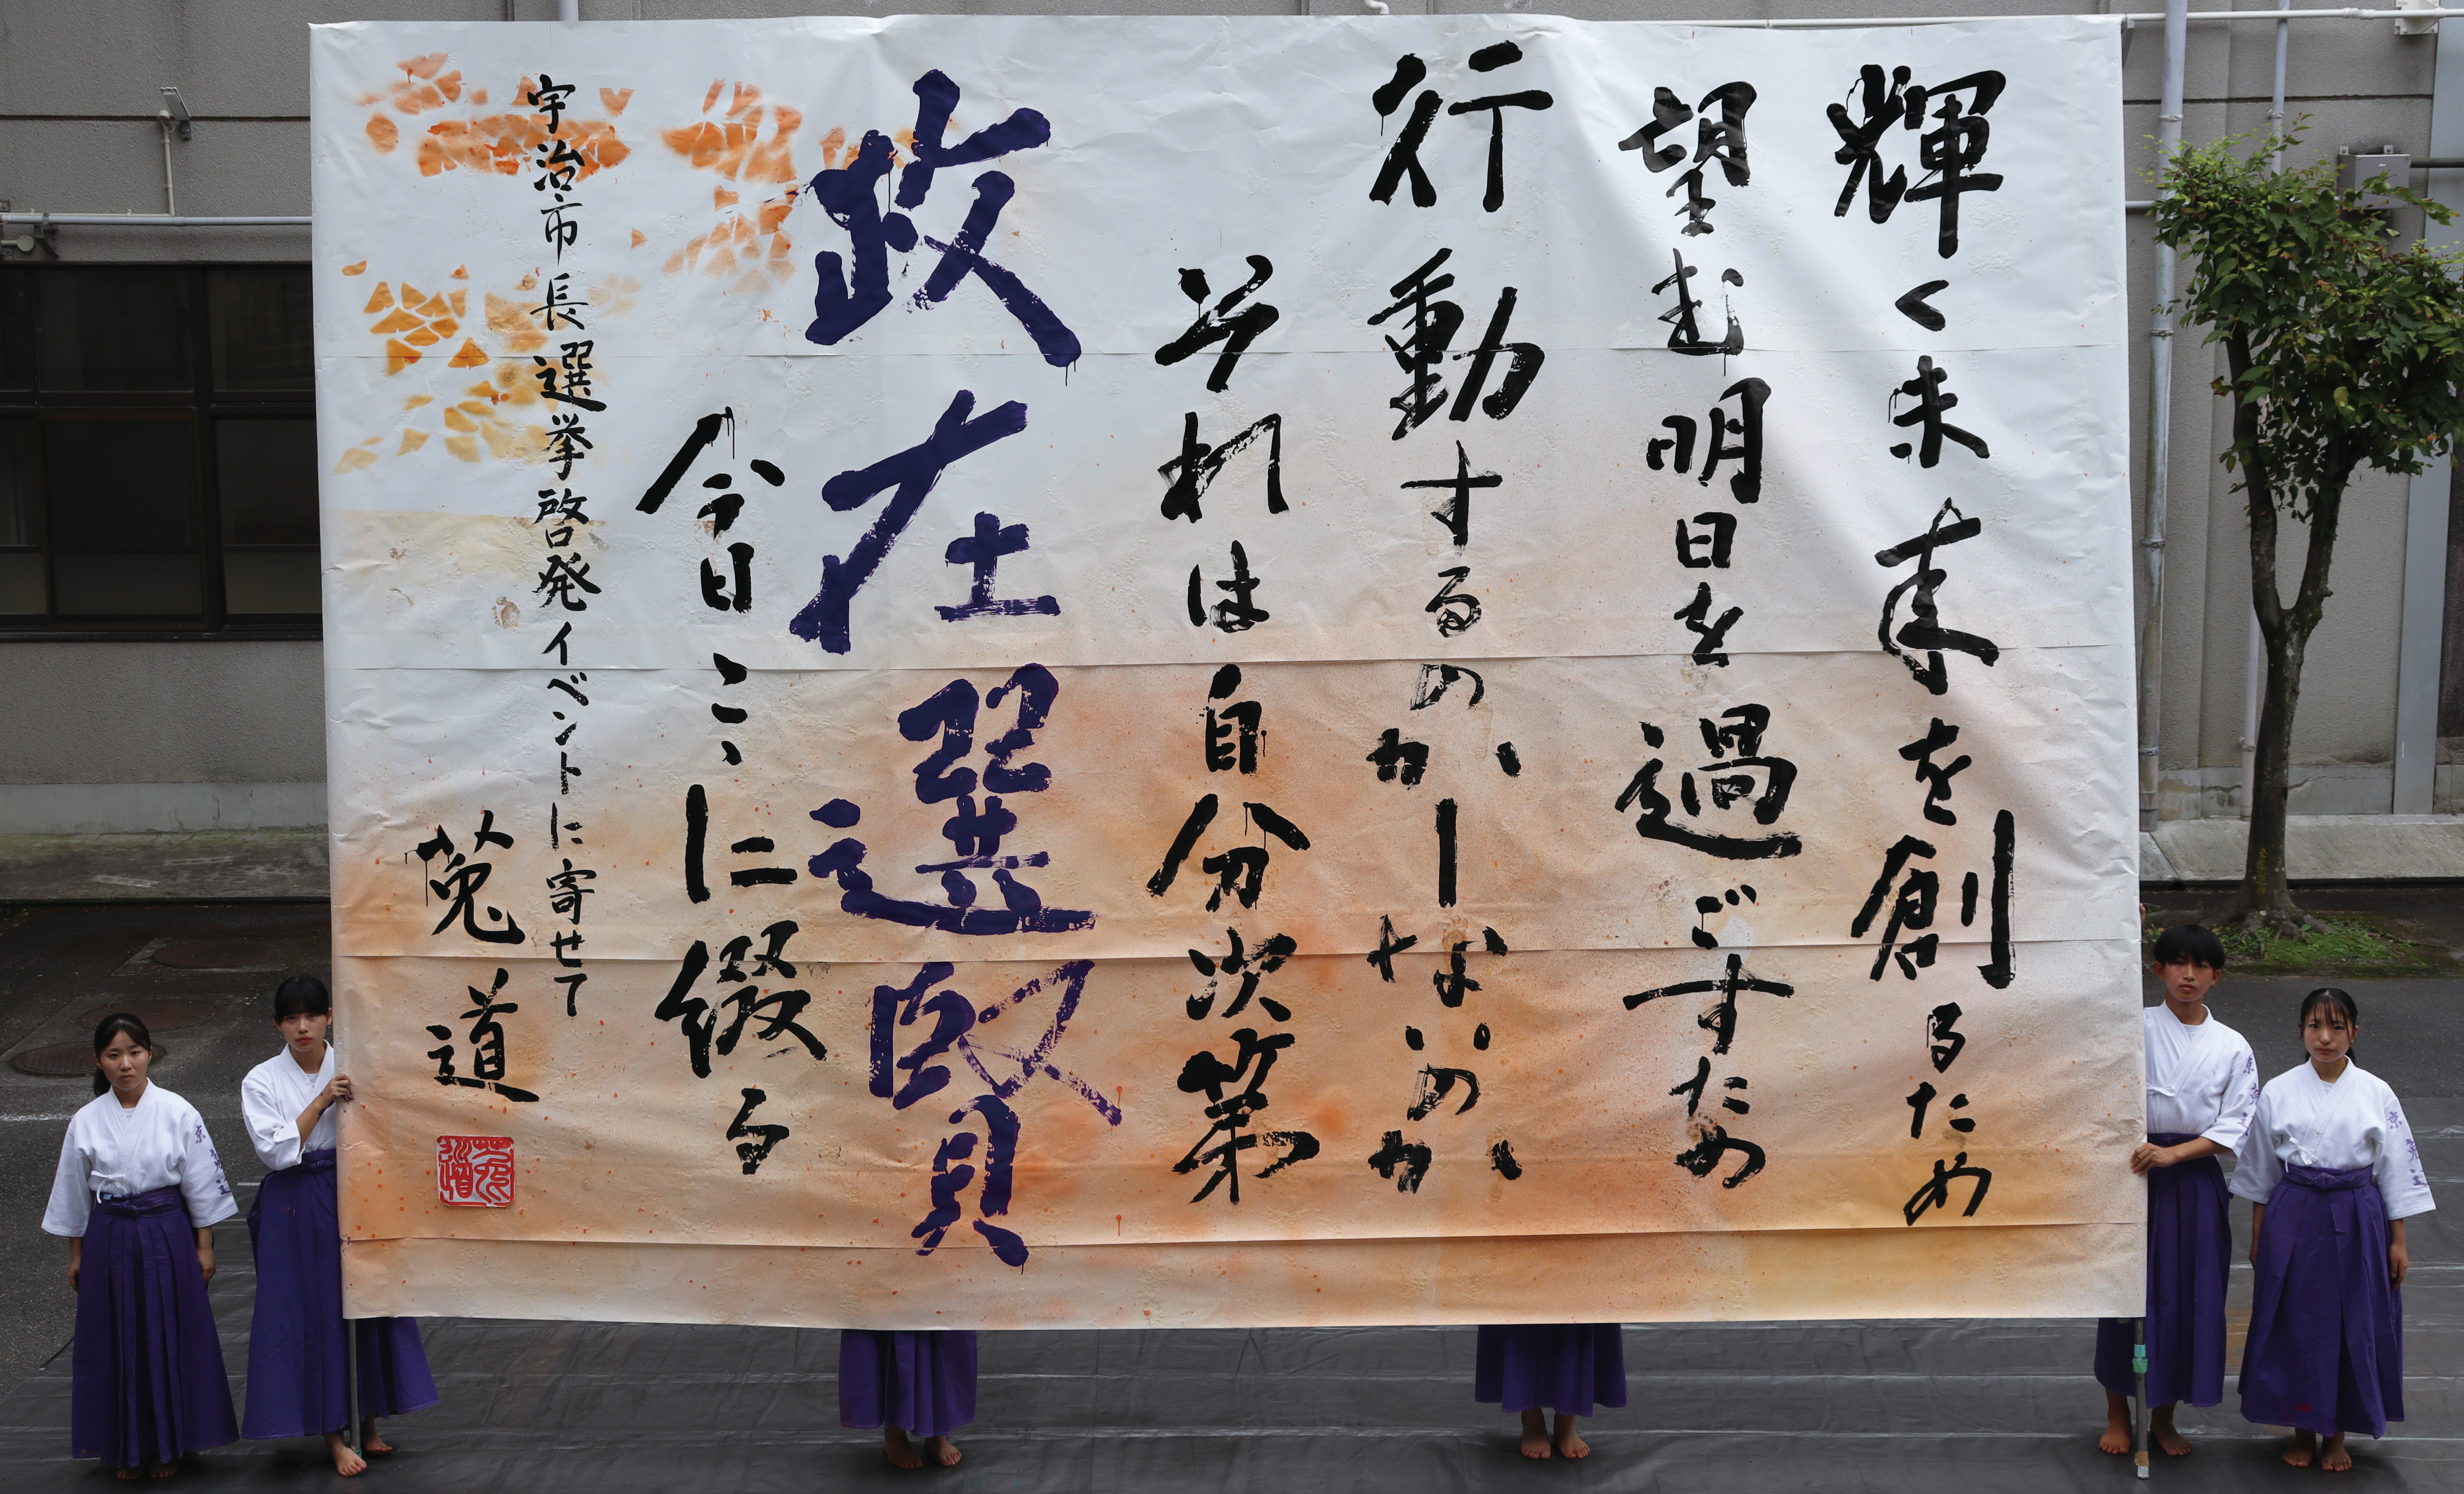 輝く未来を創るため
望む明日を過ごすため
行動するのかしないのか
それは自分次第
政在選賢
今日こゝに綴る
宇治市長選挙啓発イベントに寄せて
菟道
菟道